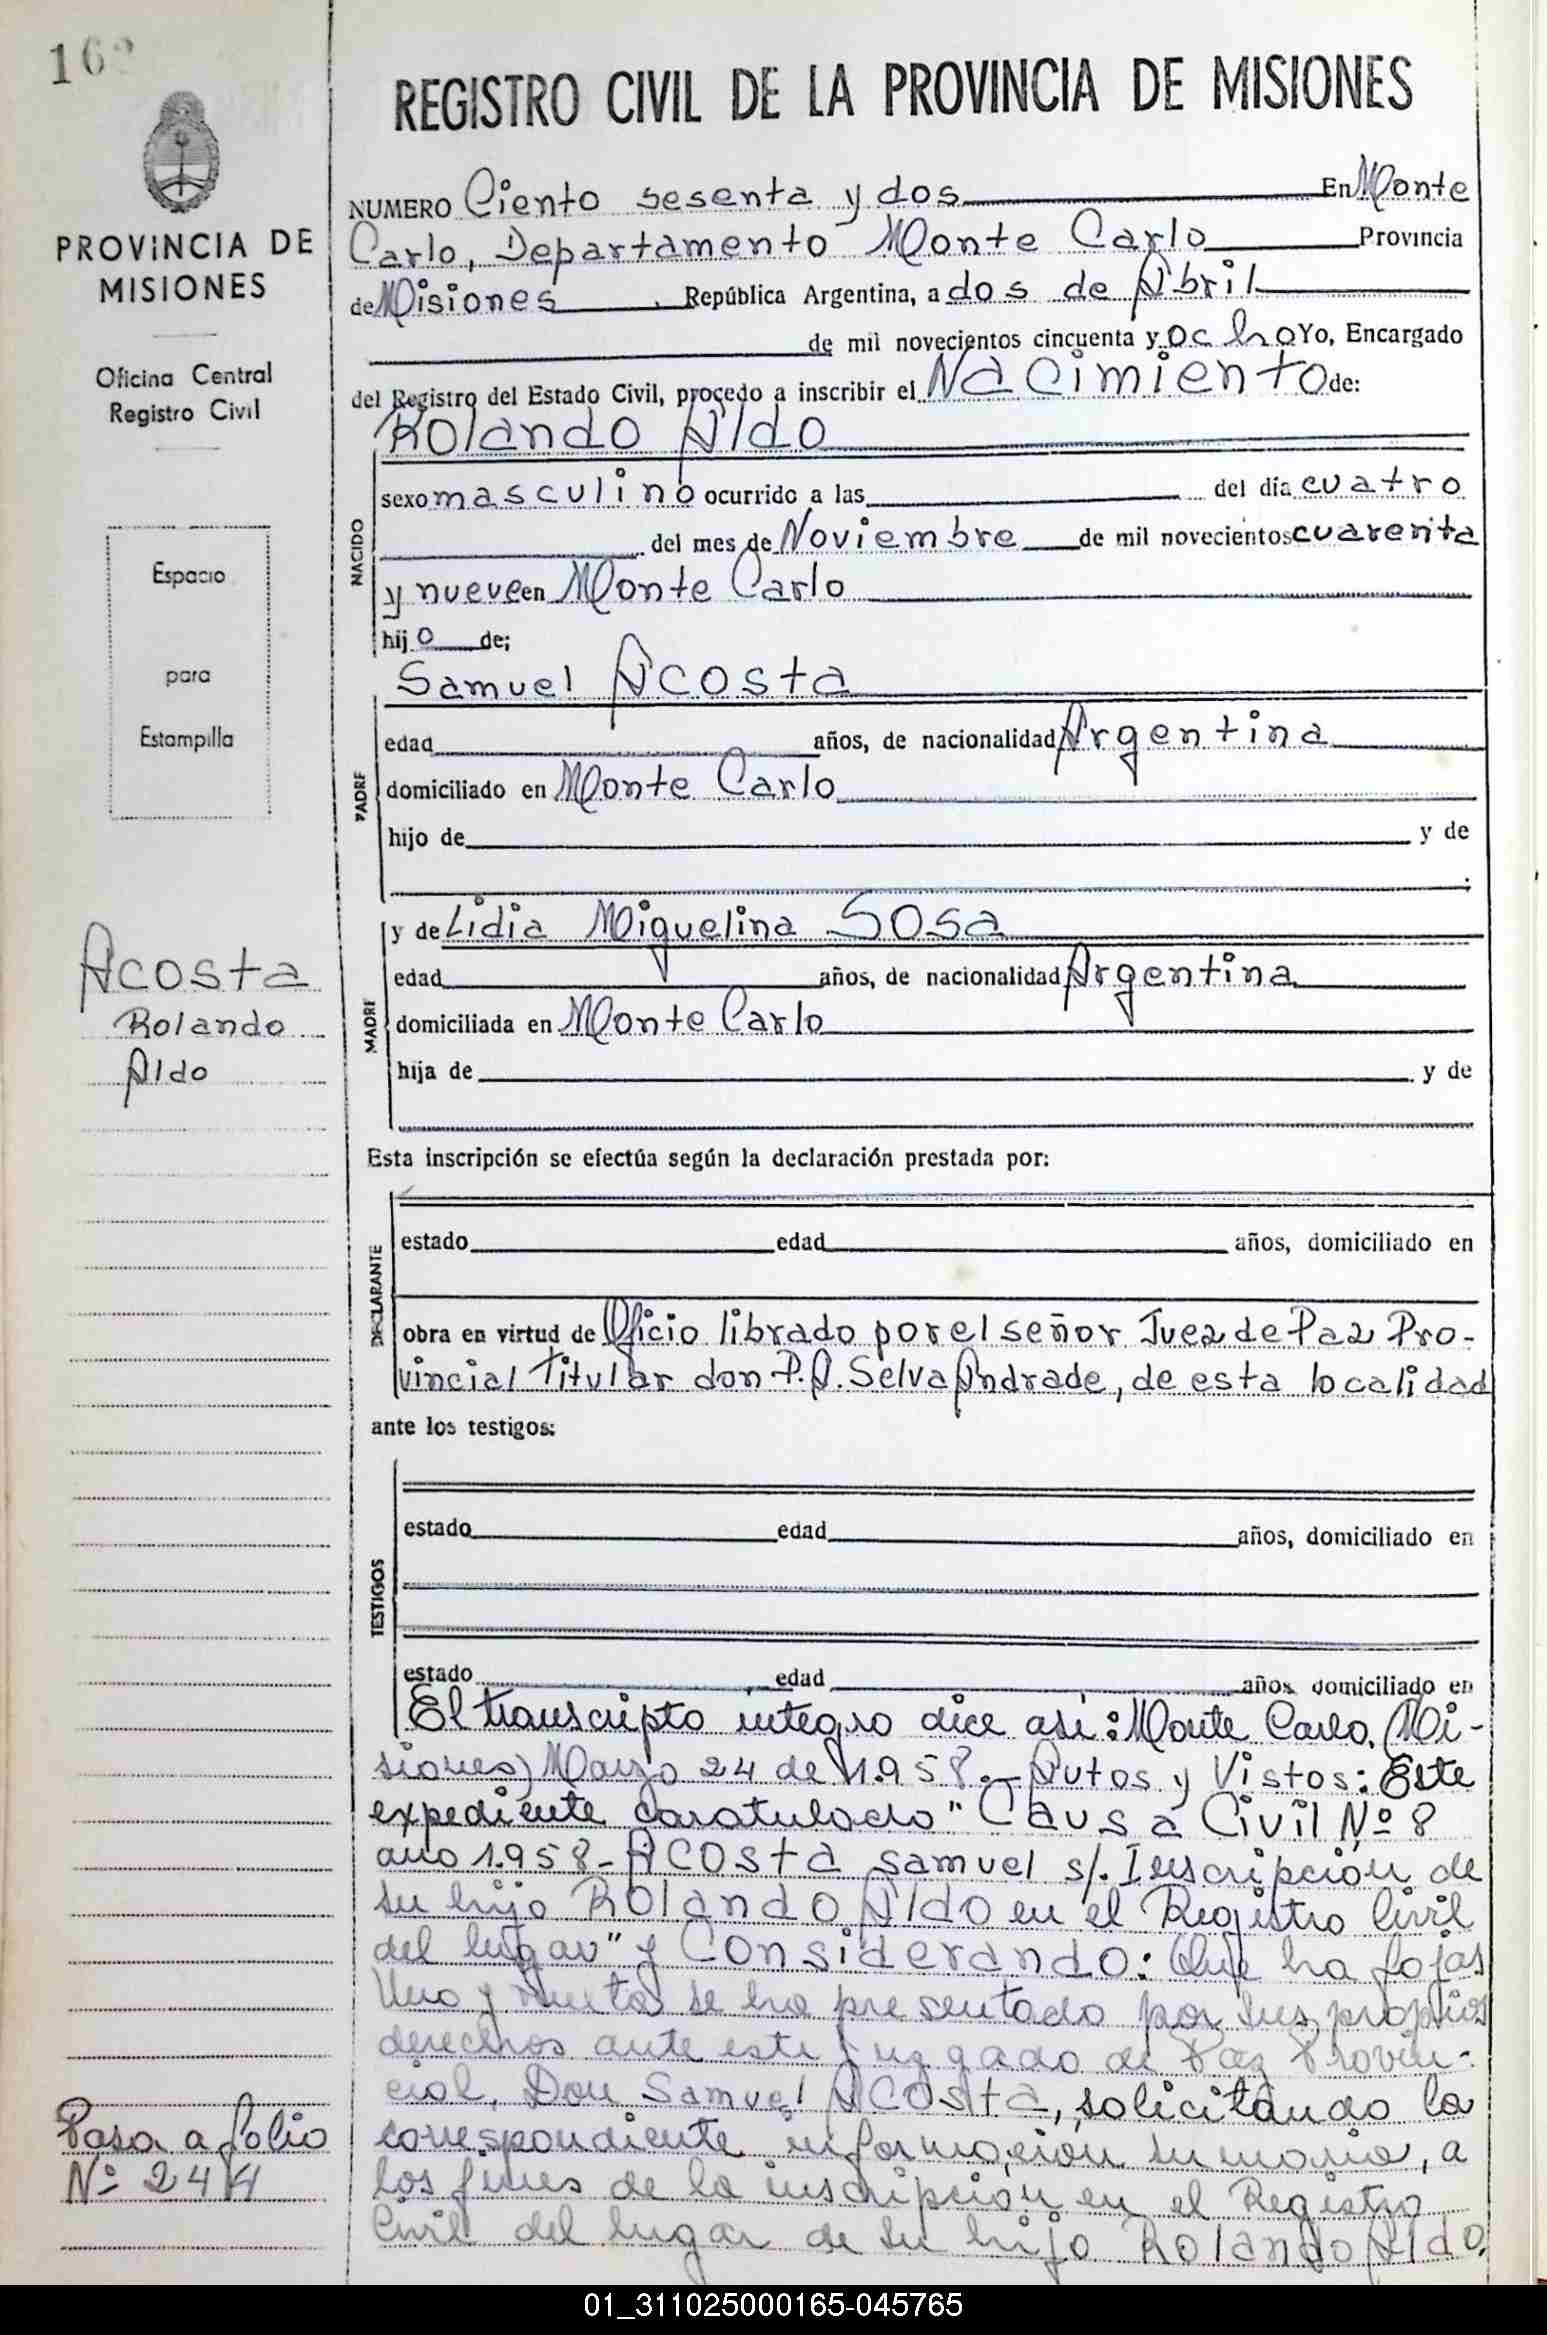 162
PROVINCIA DE
MISIONES
Oficina Central
Registro Civil
Espacio
para
Estampilla
Acosta
Rolando
Aldo
Pasa a folio
Nº 244
REGISTRO CIVIL DE LA PROVINCIA DE MISIONES
NUMERO Ciento sesenta y dos En Monte
Carlo, Departamento Monte Carlo Provincia
de Misiones República Argentina, a dos de Abril
de mil novecientos cincuenta y ocho Yo, Encargado
del Registro del Estado Civil, procedo a inscribir el Nacimiento de:
Rolando Aldo
NACIDO
sexo masculino ocurrido a las del día cuatro
del mes de Noviembre de mil novecientos cuarenta
y nueve en Monte Carlo
hijo de;
Samuel Acosta
PADRE
edad años, de nacionalidad Argentina
domiciliado en Monte Carlo
hijo de y de
y de Lidia Miguelina Sosa
MADRE
edad años, de nacionalidad Argentina
domiciliada en Monte Carlo
hija de y de
Esta inscripción se efectúa según la declaración prestada por:
DECLARANTE
estado edad años, domiciliado en
obra en virtud de Oficio librado por el señor Juez de Paz Pro-
vincial Titular don P.A. Selva Andrade, de esta localidad
ante los testigos:
TESTIGOS
estado edad años, domiciliado en
estado edad años domiciliado en
El transcripto integro dice asi: Monte Carlo, (Mi-
siones) Marzo 24 de 1.958.- Autos y Vistos: Este
expediente caratulado "Causa Civil Nº 8
año 1.958- Acosta Samuel s/. Inscripción de
su hijo Rolando Aldo en el Registro Civil
del lugar" y Considerando: Que ha fojas
Uno y vuelta se ha presentado por sus propios
derechos ante este juzgado de Paz Provin-
cial, Don Samuel Acosta, solicitando la
correspondiente información sumaria, a
los fines de la inscripción en el Registro
Civil del lugar de su hijo Rolando Aldo,
01_311025000165-045765